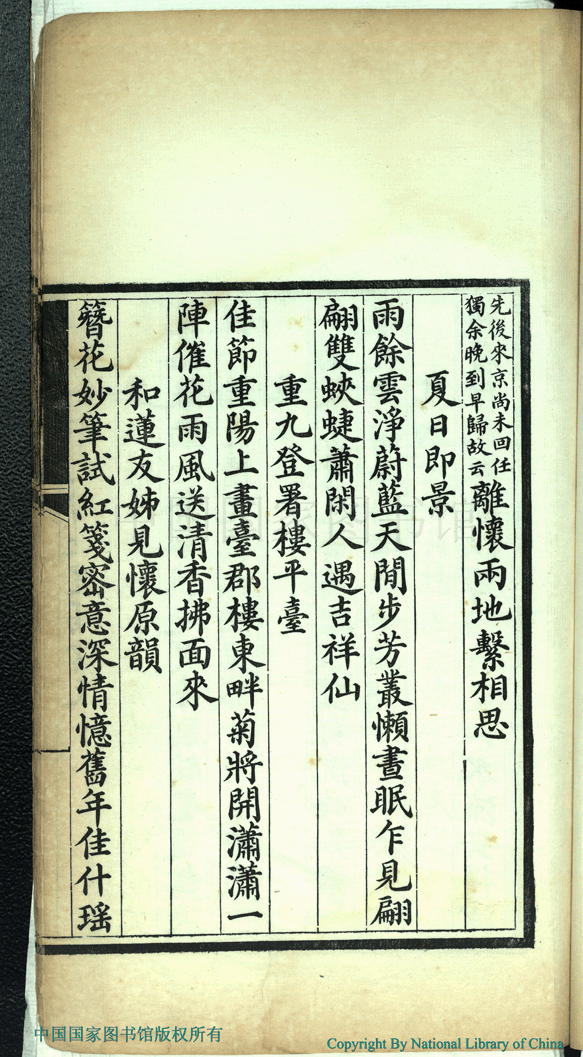 先後來京尚未回任
獨余晚到早歸故云
離懷兩地繫相思
夏日即景
雨餘雲淨蔚藍天閒步芳叢懶晝眠乍見翩
翩雙蛺蜨蕭閑人遇吉祥仙
重九登署樓平臺
佳節重陽上畫臺郡樓東畔菊將開瀟瀟一
陣催花雨風送清香拂面來
和蓮友姊見懷原韻
簪花妙筆試紅箋密意深情憶舊年佳什瑶
中国国家图书馆版权所有
Copyright By National Library of China